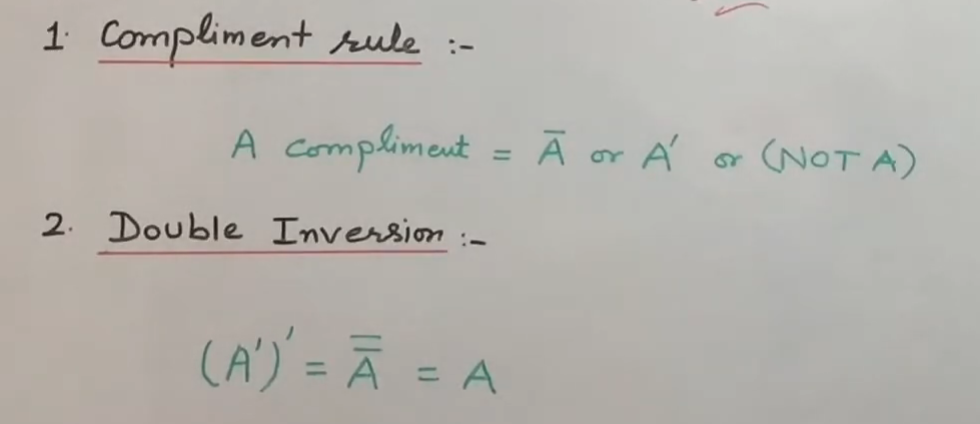 1. Compliment rule :-
A compliment = A̅ or A' or (NOT A)
2. Double Inversion :-
(A')' = A̿ = A